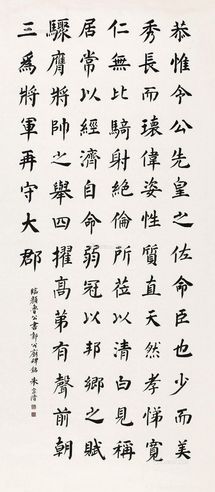 恭惟令公先皇之佐命臣也少而美
秀長而瓌偉姿性質直天然孝悌寬
仁無比騎射絕倫所莅以清白見稱
居常以經濟自命弱冠以邦鄉之賦
驟膺將帥之舉四擢高弟有聲前朝
三爲將軍再守大郡
臨顏魯公書郭公廟碑銘 朱